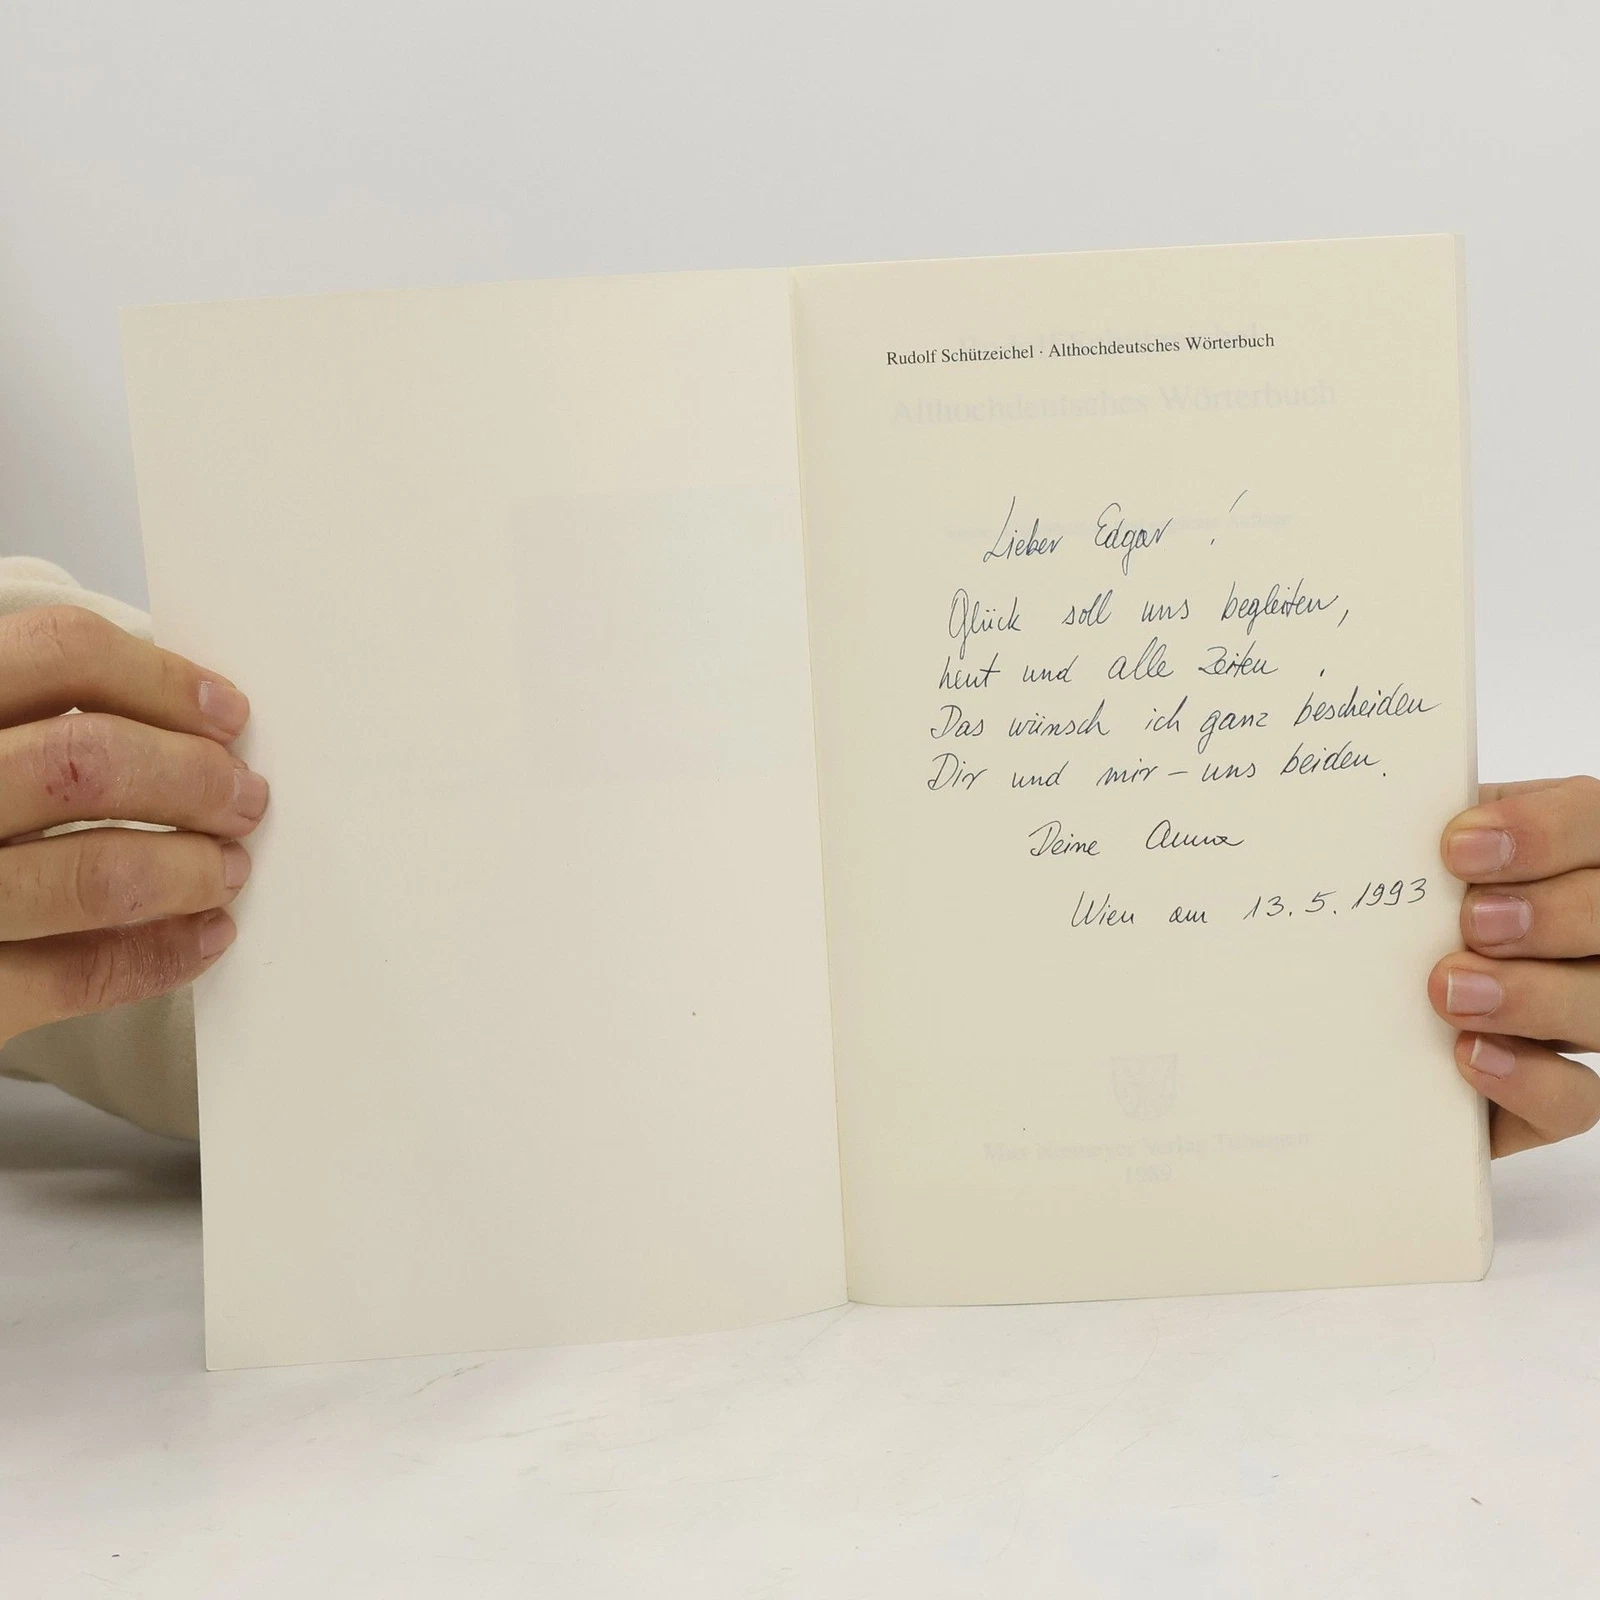 Rudolf Schützeichel · Althochdeutsches Wörterbuch
Althochdeutsches Wörterbuch
Lieber Edgar !
Glück soll uns begleiten,
heut und alle Zeiten .
Das wünsch ich ganz bescheiden
Dir und mir – uns beiden.
Deine Anna
Wien am 13.5.1993
Max Niemeyer Verlag Tübingen
1989